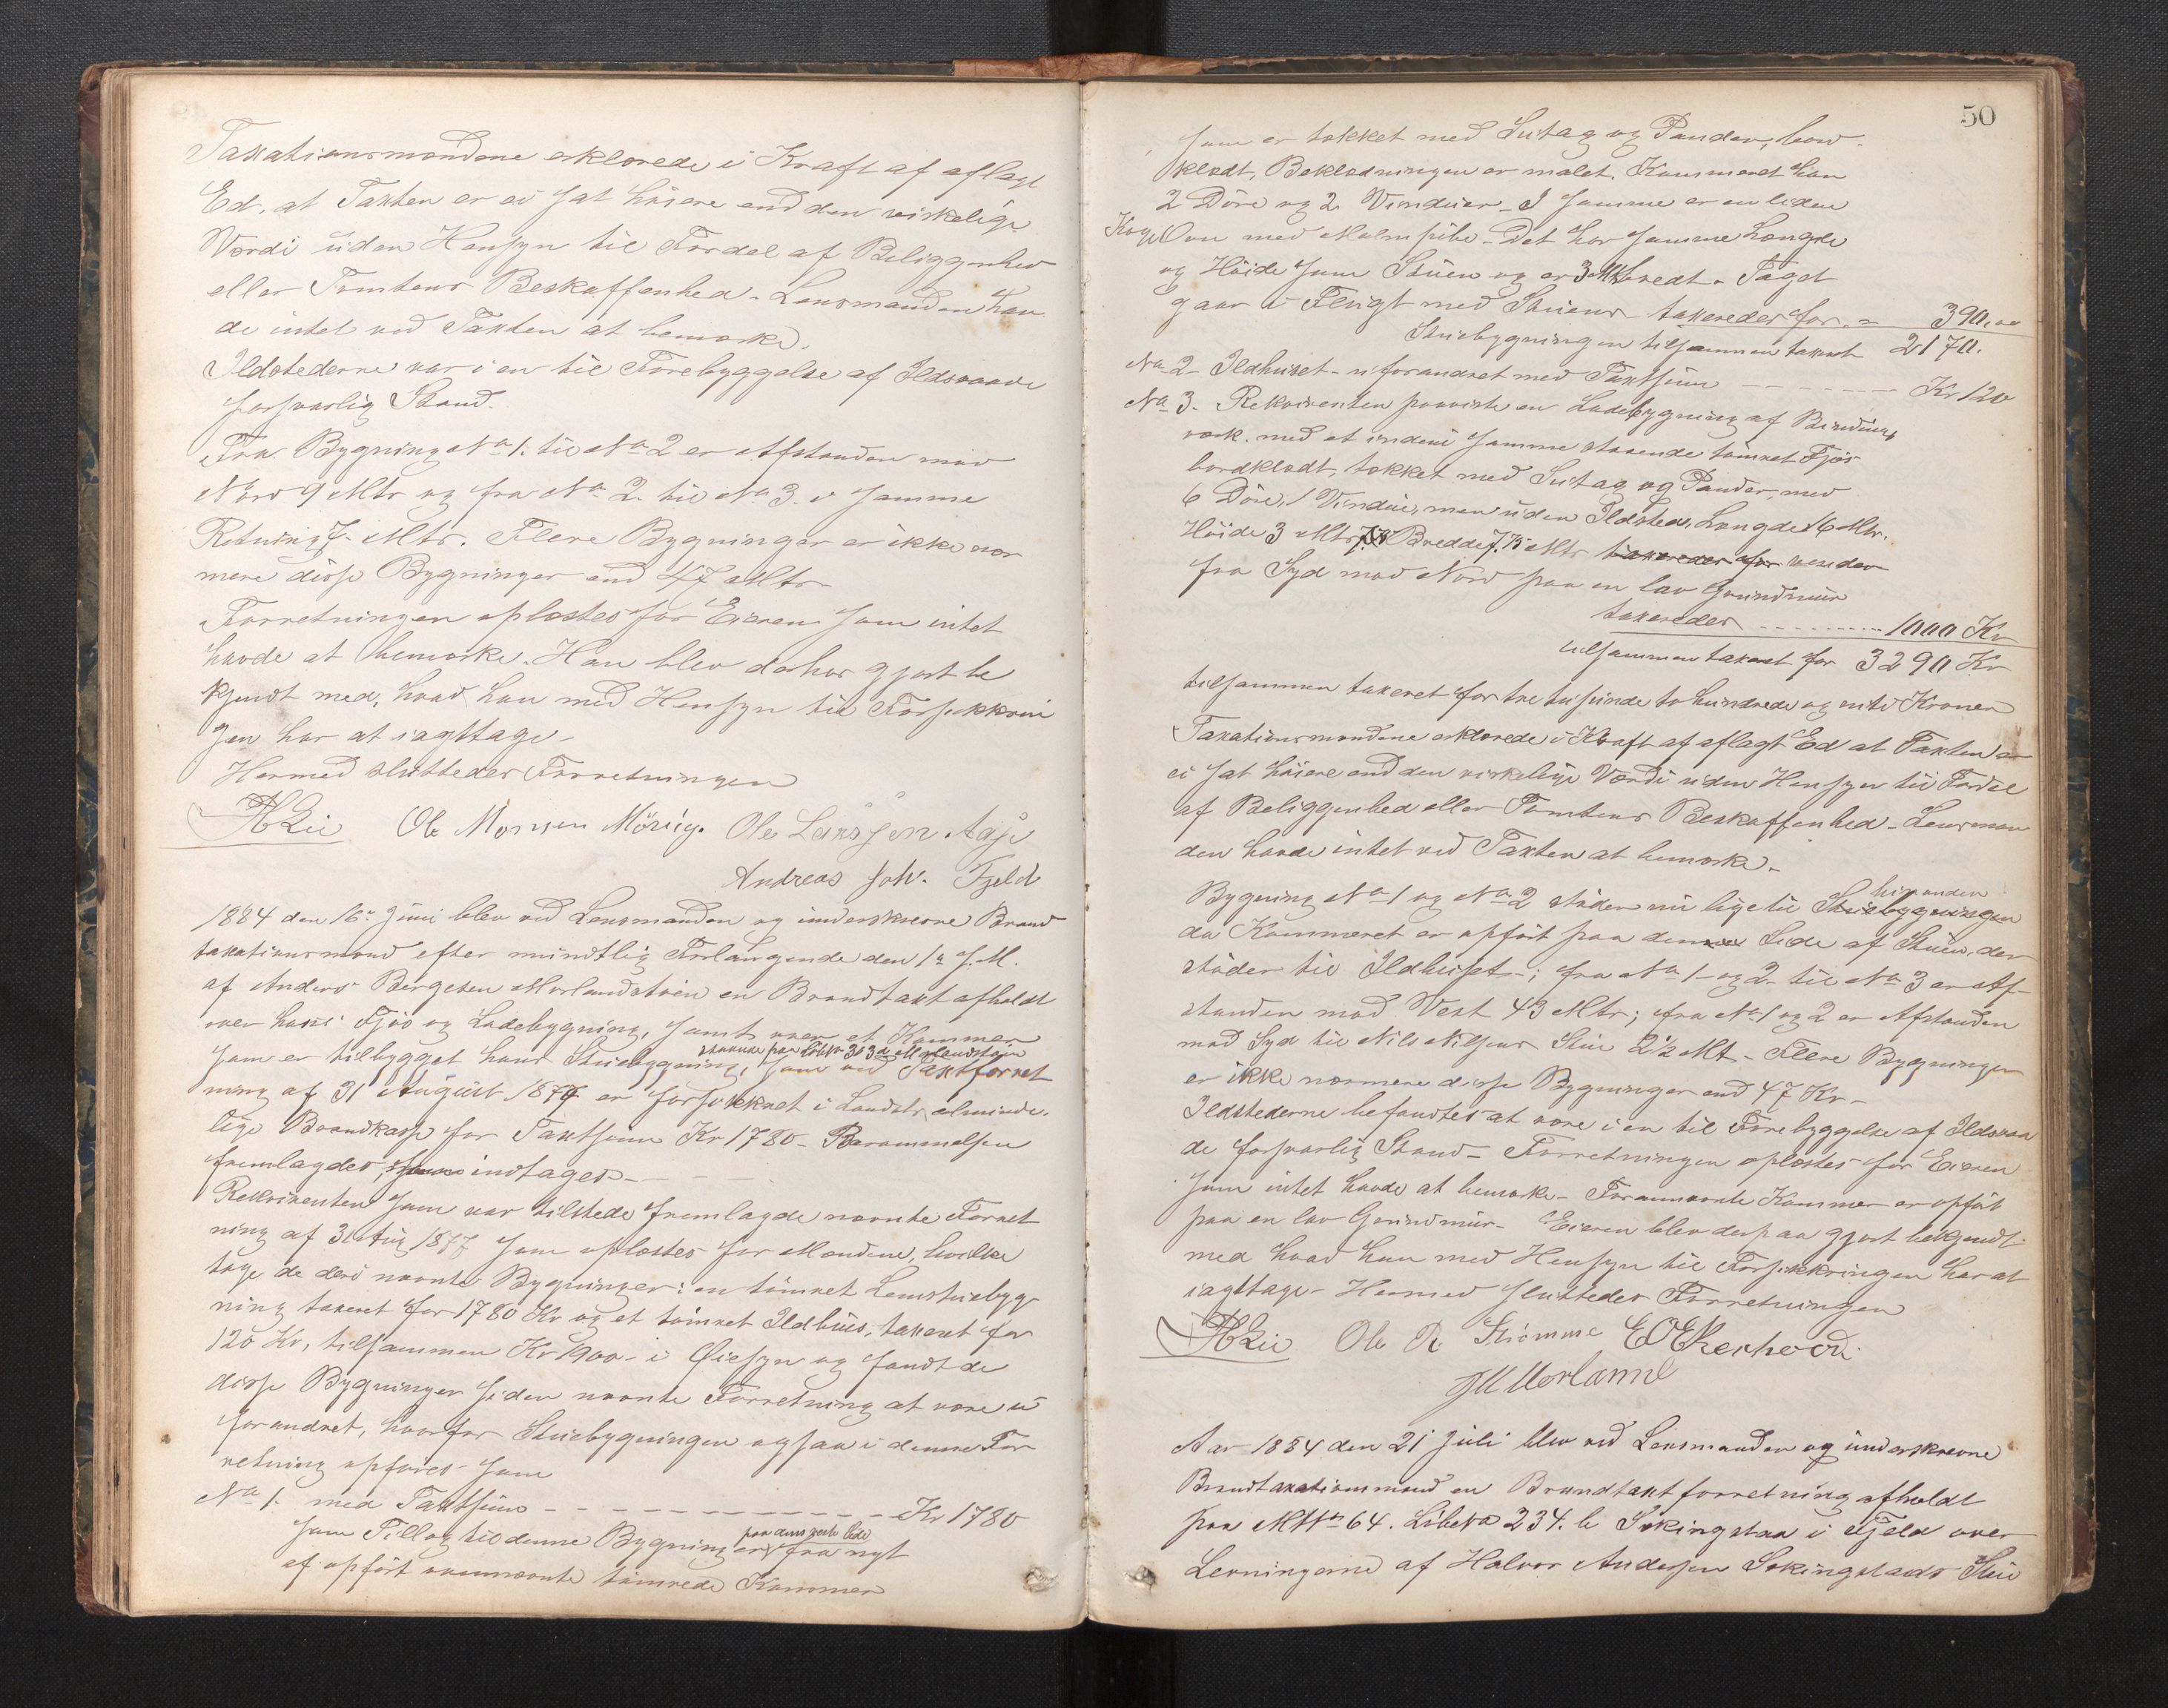 Taxationsmændene erklærede i Kraft af aflagt
Ed, at Taxten er ei sat høiere end den virkelige
Værdi uden Hensyn til Fordel af Beliggenhed
eller Tomtens Beskaffenhed. Lensmanden hav-
de intet ved Taxten at bemærke.
Ildstederne var i en til Forebyggelse af Ildsvaade
forsvarlig Stand.
Fra Bygning No 1. til No 2 er Afstanden mod
Nord 9 Mtr og fra No 2. til No 3. i samme
Retning 7 Mtr. Flere Bygninger er ikke nær
mere disse Bygninger end 47 Mtr
Forretningen oplæstes for Eieren som intet
havde at bemærke. Han blev derhos gjort be
kjendt med, hvad han med Hensyn til Forsikkrin
gen har at iagttage.
Hermed sluttedes Forretningen
ALie Ole Monsen Möving. Ole Larssen Aase
Andreas Joh. Fjeld
1884 den 16de Juni blev ved Lensmanden og underskrevne Brand
taxationsmænd efter mundtlig Forlangende den 1ste s. M.
af Anders Børgesen Morlandstøen en Brandtaxt afholdt
over hans Fjøs og Ladebygning, samt over et Kammer
som er tilbygget hans Stuebygning, staaende paa Løbeno 303a Morlandstøen som ved Taxtforret
ning af 31 August 1877 er forsikkret i Landets alminde-
lige Brandkasse for Taxtsum Kr 1780 - Berammelsen
fremlagdes, som indtages - - -
Rekvirenten som var tilstede fremlagde nævnte Forret
ning af 31 Aug 1877 som oplæstes for Mændene, hvilke
toge de deri nævnte Bygninger: en tømret Lemstuebyg-
ning taxeret for 1780 Kr og et tømret Ildhus, taxeret for
120 Kr, tilsammen Kr 1900 - i Øiesyn og fandt de
disse Bygninger siden nævnte Forretning at være u
forandret, hvorfor Stuebygningen ogsaa i denne For
retning opføres som
No 1. med Taxtsum - - - - - - - - - - Kr 1780
som Tillæg til denne Bygning er paa dens vestre Side fra nyt
af opført ovennævnte tømrede Kammer
50
som er tækket med Sutag og Pander, bord-
klædt, Beklædningen er malet. Kammeret har
2 Døre og 2 Vinduer - I samme er en liden
Koge Ovn med Malmpibe - Det har samme Længde
og Høide som Stuen og er 3 Mtr bredt. Taget
gaar i Flugt med Stuens taxeredes for - 390,00
Stuebygningen tilsammen taxeret 2170.
No 2 - Ildhuset - uforandret med Taxtsum - - - - - - Kr 120
No 3. Rekvirenten paaviste en Ladebygning af Bindings
værk. med et indeni samme staaende tømret Fjøs
bordklædt, tækket med Sutag og Pander, med
6 Døre, 1 Vindue, men uden Ildsted, Længde 16 Mtr.
Høide 3 Mtr Bredde 7.75 Mtr taxeredes for vender
fra Syd mod Nord paa en lav Grundmur
taxeredes - - - - - - 1000 Kr
tilsammen taxeret for 3290 Kr
tilsammen taxeret for tre tusinde to hundrede og niti Kroner
Taxationsmændene erklærede i Kraft af aflagt Ed at Taxten er
ei sat høiere end den virkelige Værdi uden Hensyn til Fordel
af Beliggenhed eller Tomtens Beskaffenhed - Lensman
den havde intet ved Taxten at bemærke -
Bygning No 1 og No 2 støder nu lige til Stuebygningen hinanden
da Kammeret er opført paa den Side af Stuen, der
støder til Ildhuset -; fra No 1 - og 2 - til No 3 er Af-
standen mod Vest 43 Mtr; fra No 1 og 2 er Afstanden
mod Syd til Nils Nilsens Stue 2 1/2 Mt - Flere Bygninger
er ikke nærmere disse Bygninger end 47 Kr -
Ildstederne befandtes at være i en til Forebyggelse af Ildsvaa
de forsvarlig Stand - Forretningen oplæstes for Eieren
som intet havde at bemærke - Forannævnte Kammer er opført
paa en lav Grundmur - Eieren blev derpaa gjort bekjendt
med hvad han med Hensyn til Forsikkringen har at
iagttage - Hermed sluttedes Forretningen
ALie Ole R Strömme
Morland
Aar 1884 den 21 Juli blev ved Lensmanden og underskrevne
Brandtaxationsmænd en Brandtaxtforretning afholdt
paa MNo 64. LøbeNo 234. b Sekingstad i Fjeld over
Levningerne af Halvor Andersen Sekingstads Stue